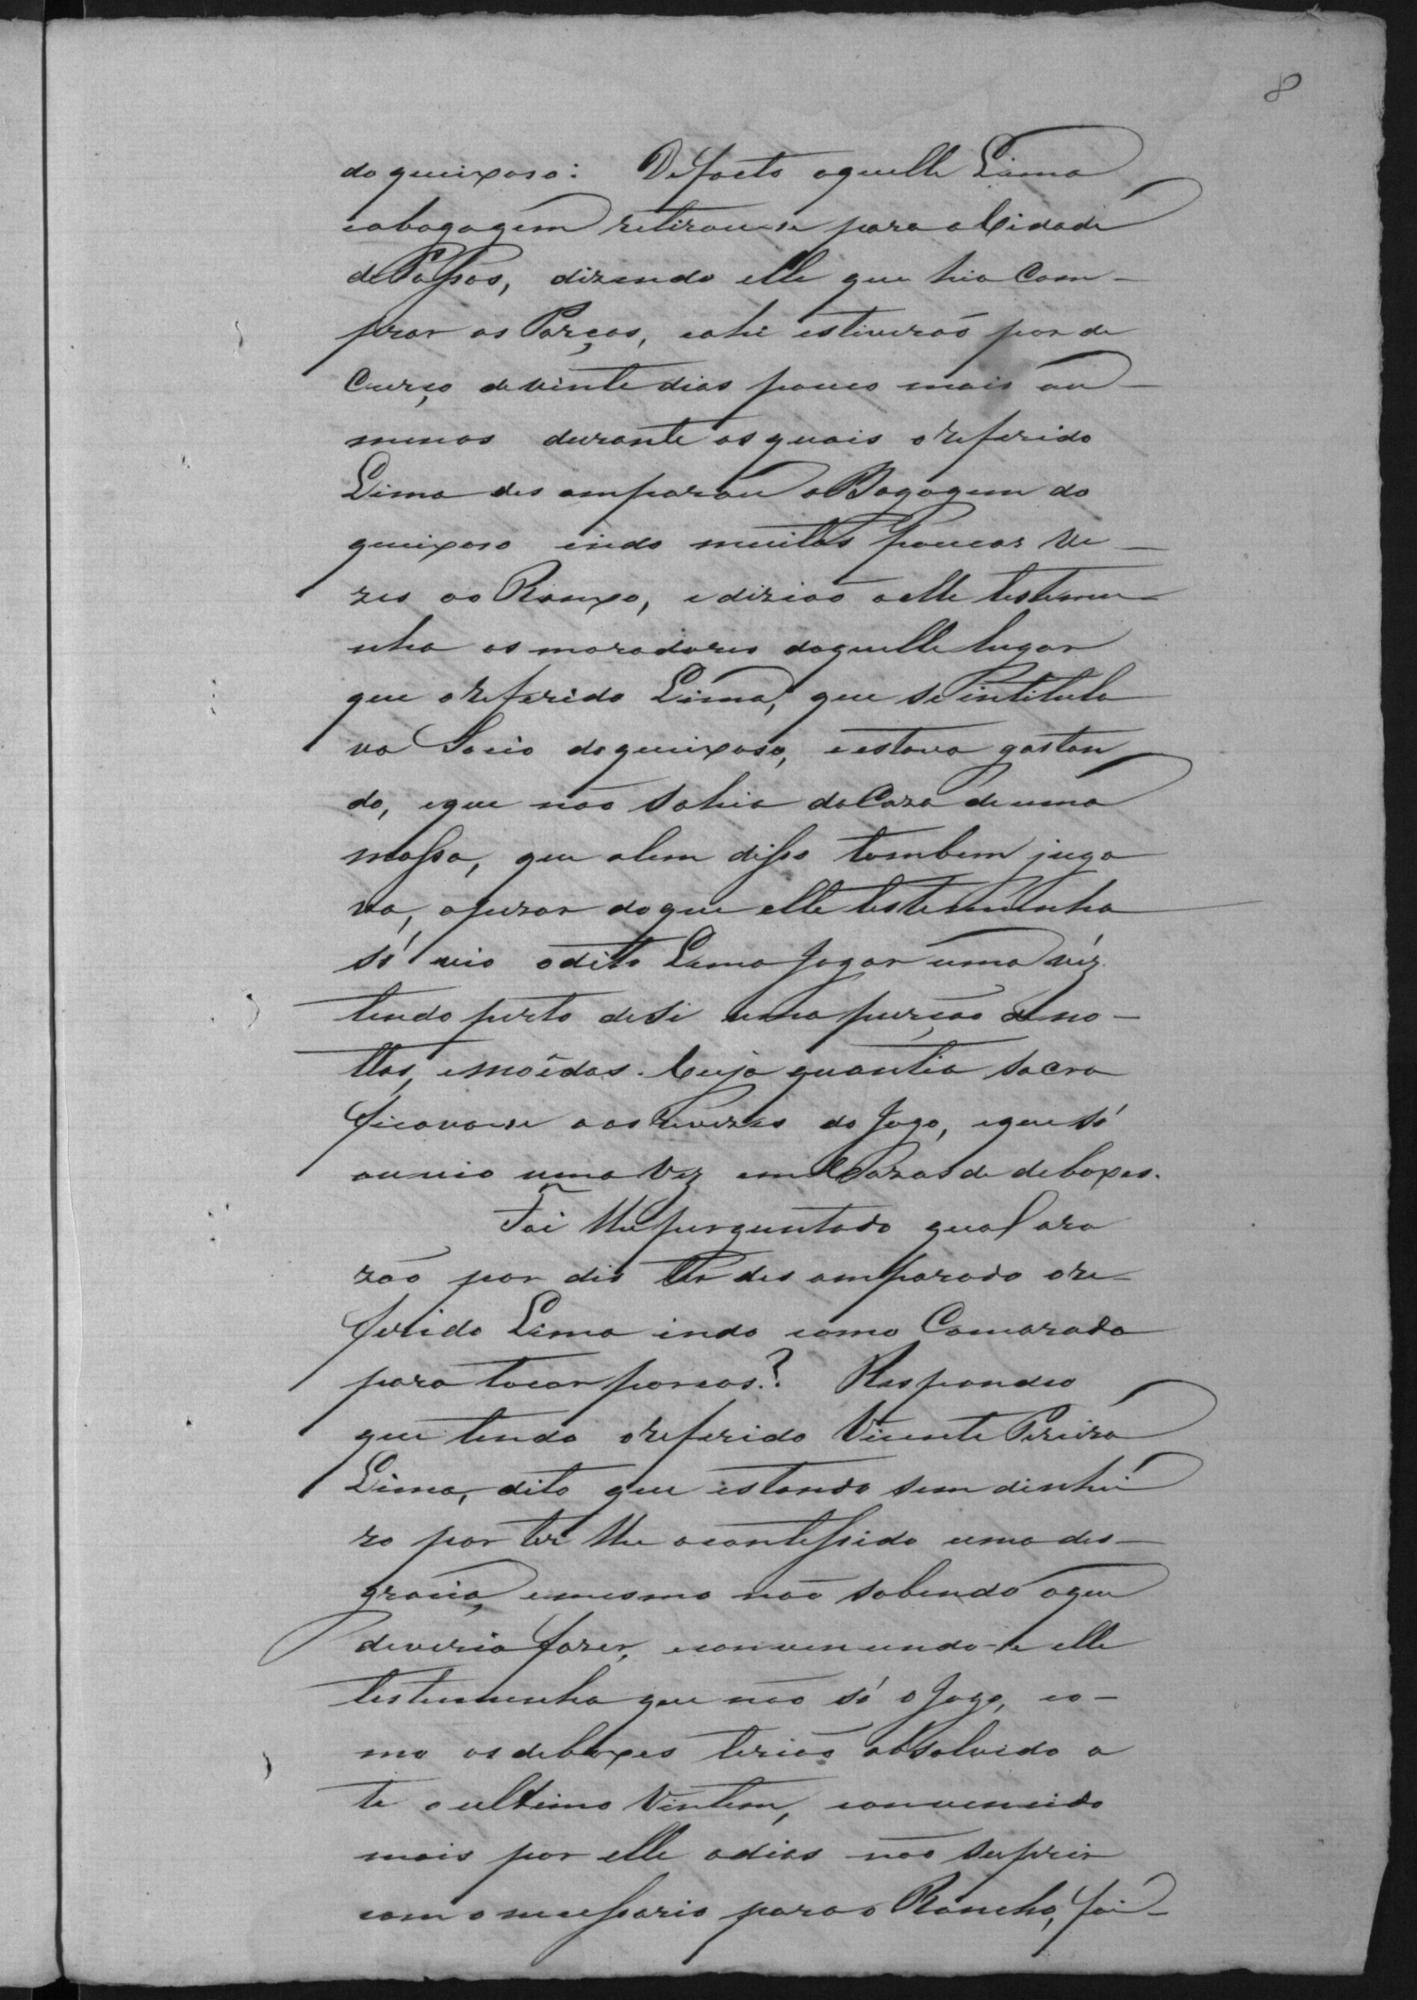 8
do queixoso: De facto aquelle Lima
e a bagagem retirou-se para a Cidade
de Passos, dizendo elle que hia Com-
prar os Porços, e ahi estiverão por de
Curço de vinte dias pouco mais ou
menos durante os quais o referido
Lima des amparou a Bagagem do
queixoso indo muitas poucas ve-
zes ao Ranxo, e dizião a elle testemu-
nha os moradores daquelle lugar
que o referido Lima, que se intitula
va Socio do queixoso, e estava gastan
do, e que não sahia da Caza de uma
mossa, que alem disso tambem juga
va, apezar do que elle testemunha
só vio o dito Lima Jogar uma véz
tendo perto de si uma purção de no-
ttas, e moédas. Cuja quantia sacra
ficava-se aos revezes do Jogo, e que só
ouvio uma vez em Cazas de deboxes.
Foi lhe perguntado qual a ra
zão por dis ter des amparado o re-
ferido Lima indo como Camarada
para tocar porcos? Respondeo
que tendo o referido Vicente Pereira
Lima, dito que estando sem dinhei
ro por ter lhe acontessido uma des-
gracia, e mesmo não sabendo o que
deveria fazer, e convencendo-se elle
testemunha que não só o Jogo, co-
mo os deboxes terião absolvido a
te o ultimo Vintem, convencido
mais por elle a dias não suprir
com o necessario para o Rancho, foi-